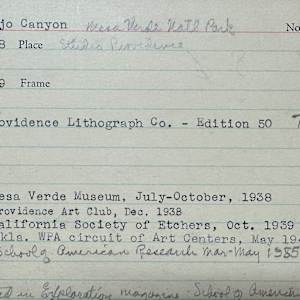 jo Canyon Mesa Verde Nat'l Park No
8 Place Studio Providence
9 Frame
ovidence Lithograph Co. - Edition 50
esa Verde Museum, July-October, 1938
rovidence Art Club, Dec. 1938
alifornia Society of Etchers, Oct. 1939
kla. WPA circuit of Art Centers, May 194
School of American Research Mar-May 1985
ed in Exploration magazine - School of America